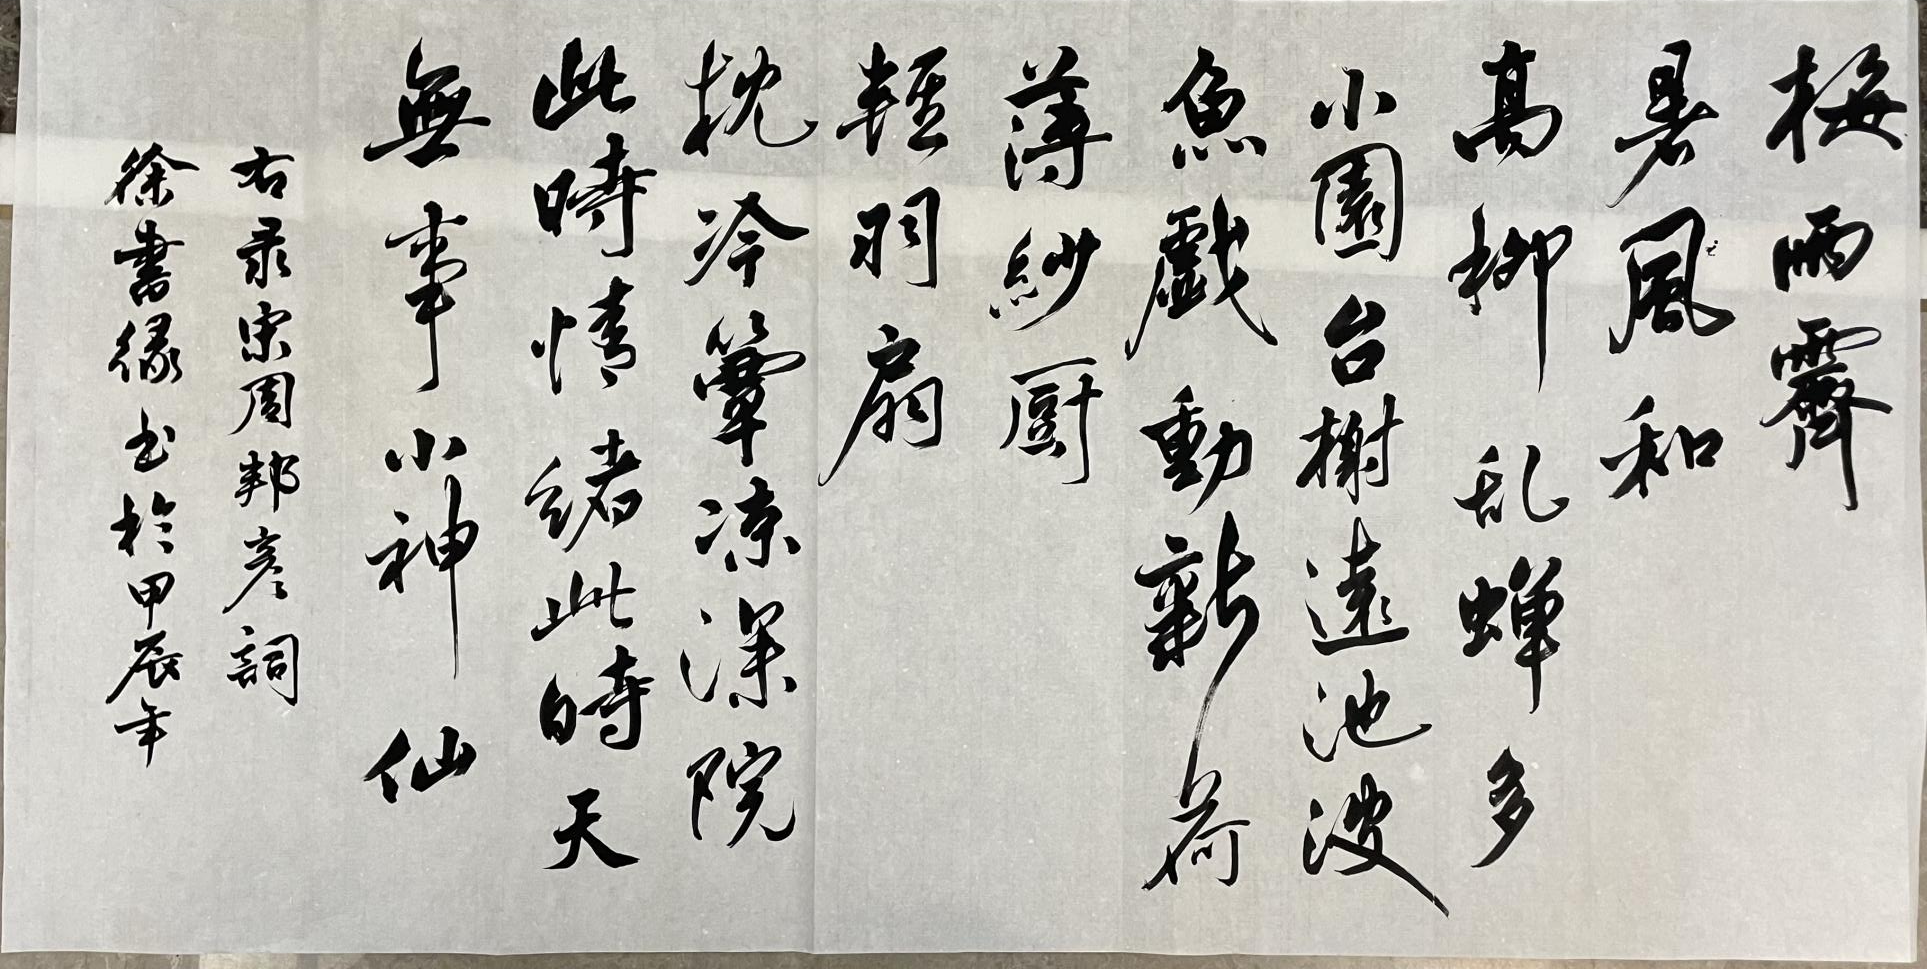 梅雨霽
暑風和
高柳乱蟬多
小園台榭遠池波
魚戲動新荷
薄紗厨
輕羽扇
枕冷簟凉深院
此時情緒此時天
無事小神仙
右录宋周邦彦詞
徐書缘书於甲辰年